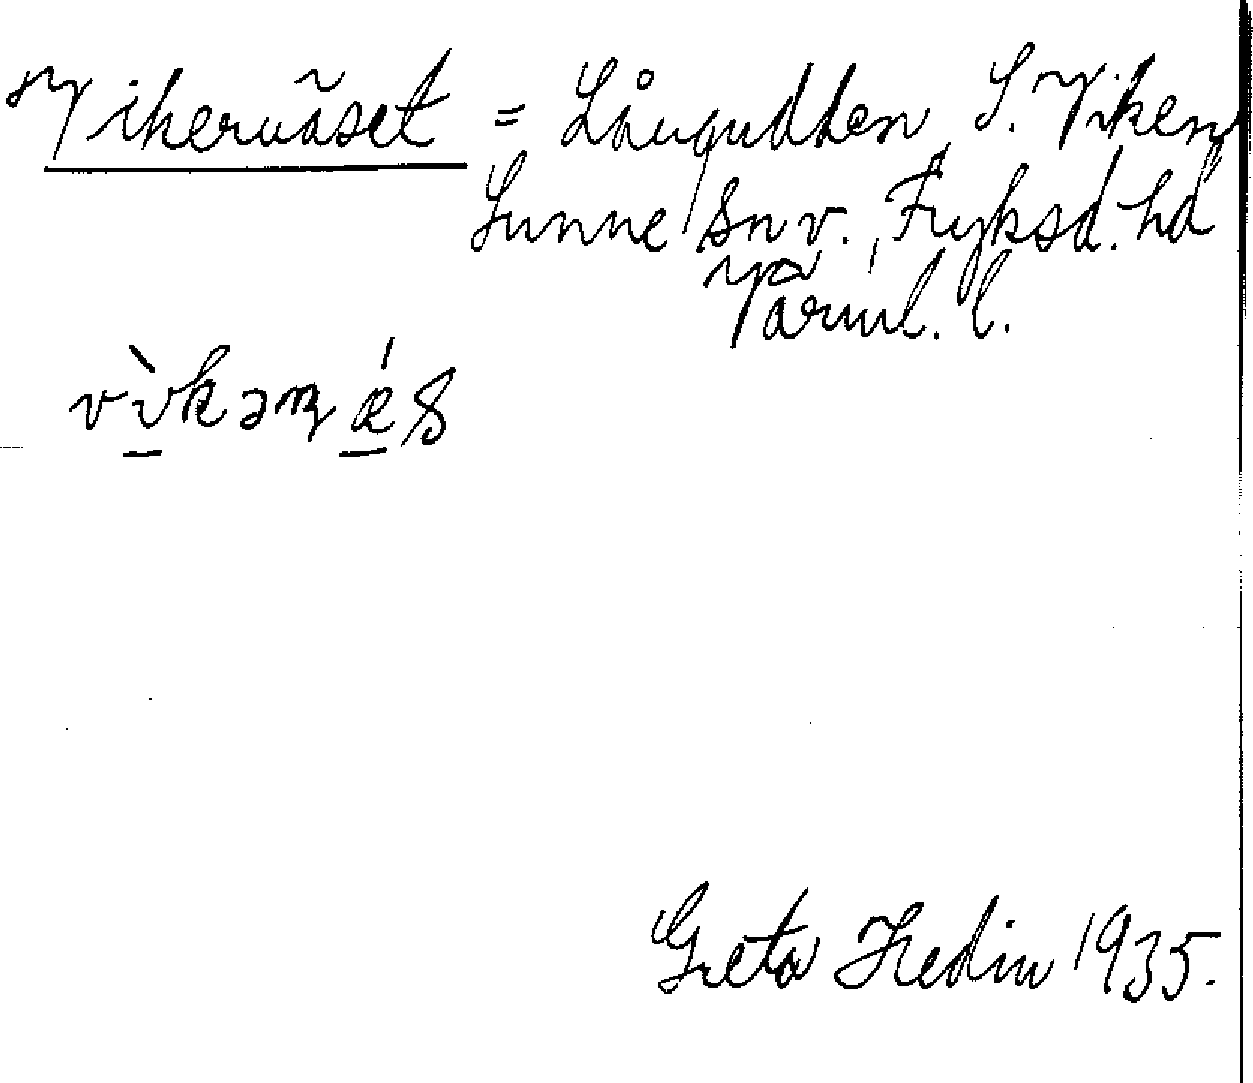 Vikernäset = Långudden, S. Viken,
Sunne sn v., Fryksd. hd
Värml. l.
Greta Hedin 1935.